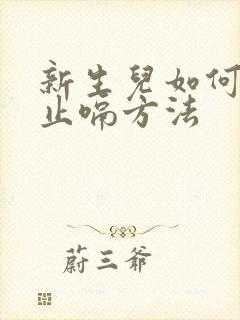 新生兒如何
止喘方法
蔚三爺